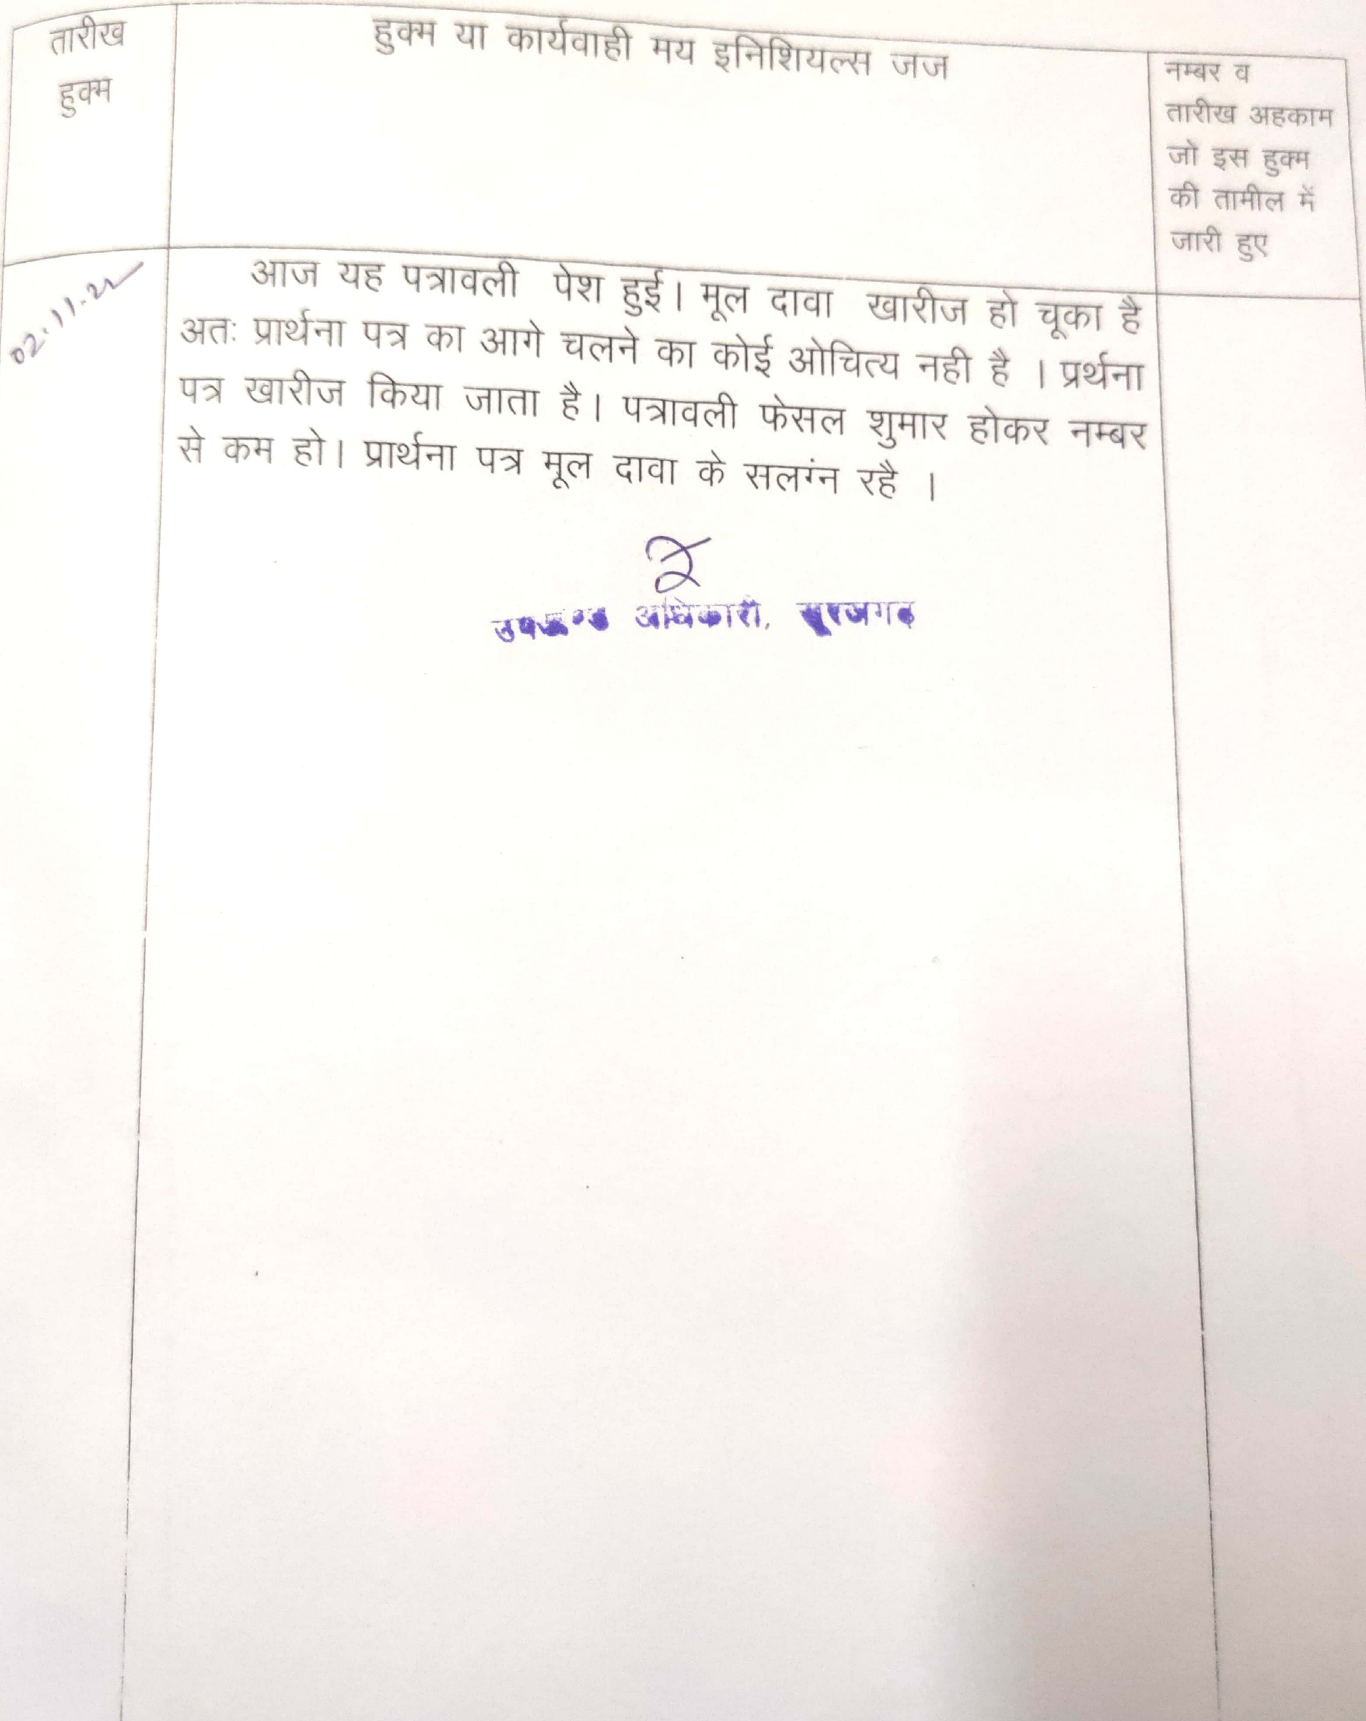 तारीख
हुक्म
हुक्म या कार्यवाही मय इनिशियल्स जज
नम्बर व
तारीख अहकाम
जो इस हुक्म
की तामील में
जारी हुए
02.11.22
आज यह पत्रावली पेश हुई। मूल दावा खारीज हो चूका है
अतः प्रार्थना पत्र का आगे चलने का कोई ओचित्य नही है । प्रर्थना
पत्र खारीज किया जाता है। पत्रावली फेसल शुमार होकर नम्बर
से कम हो। प्रार्थना पत्र मूल दावा के सलग्ंन रहै ।
उपखण्ड अधिकारी, सूरजगढ